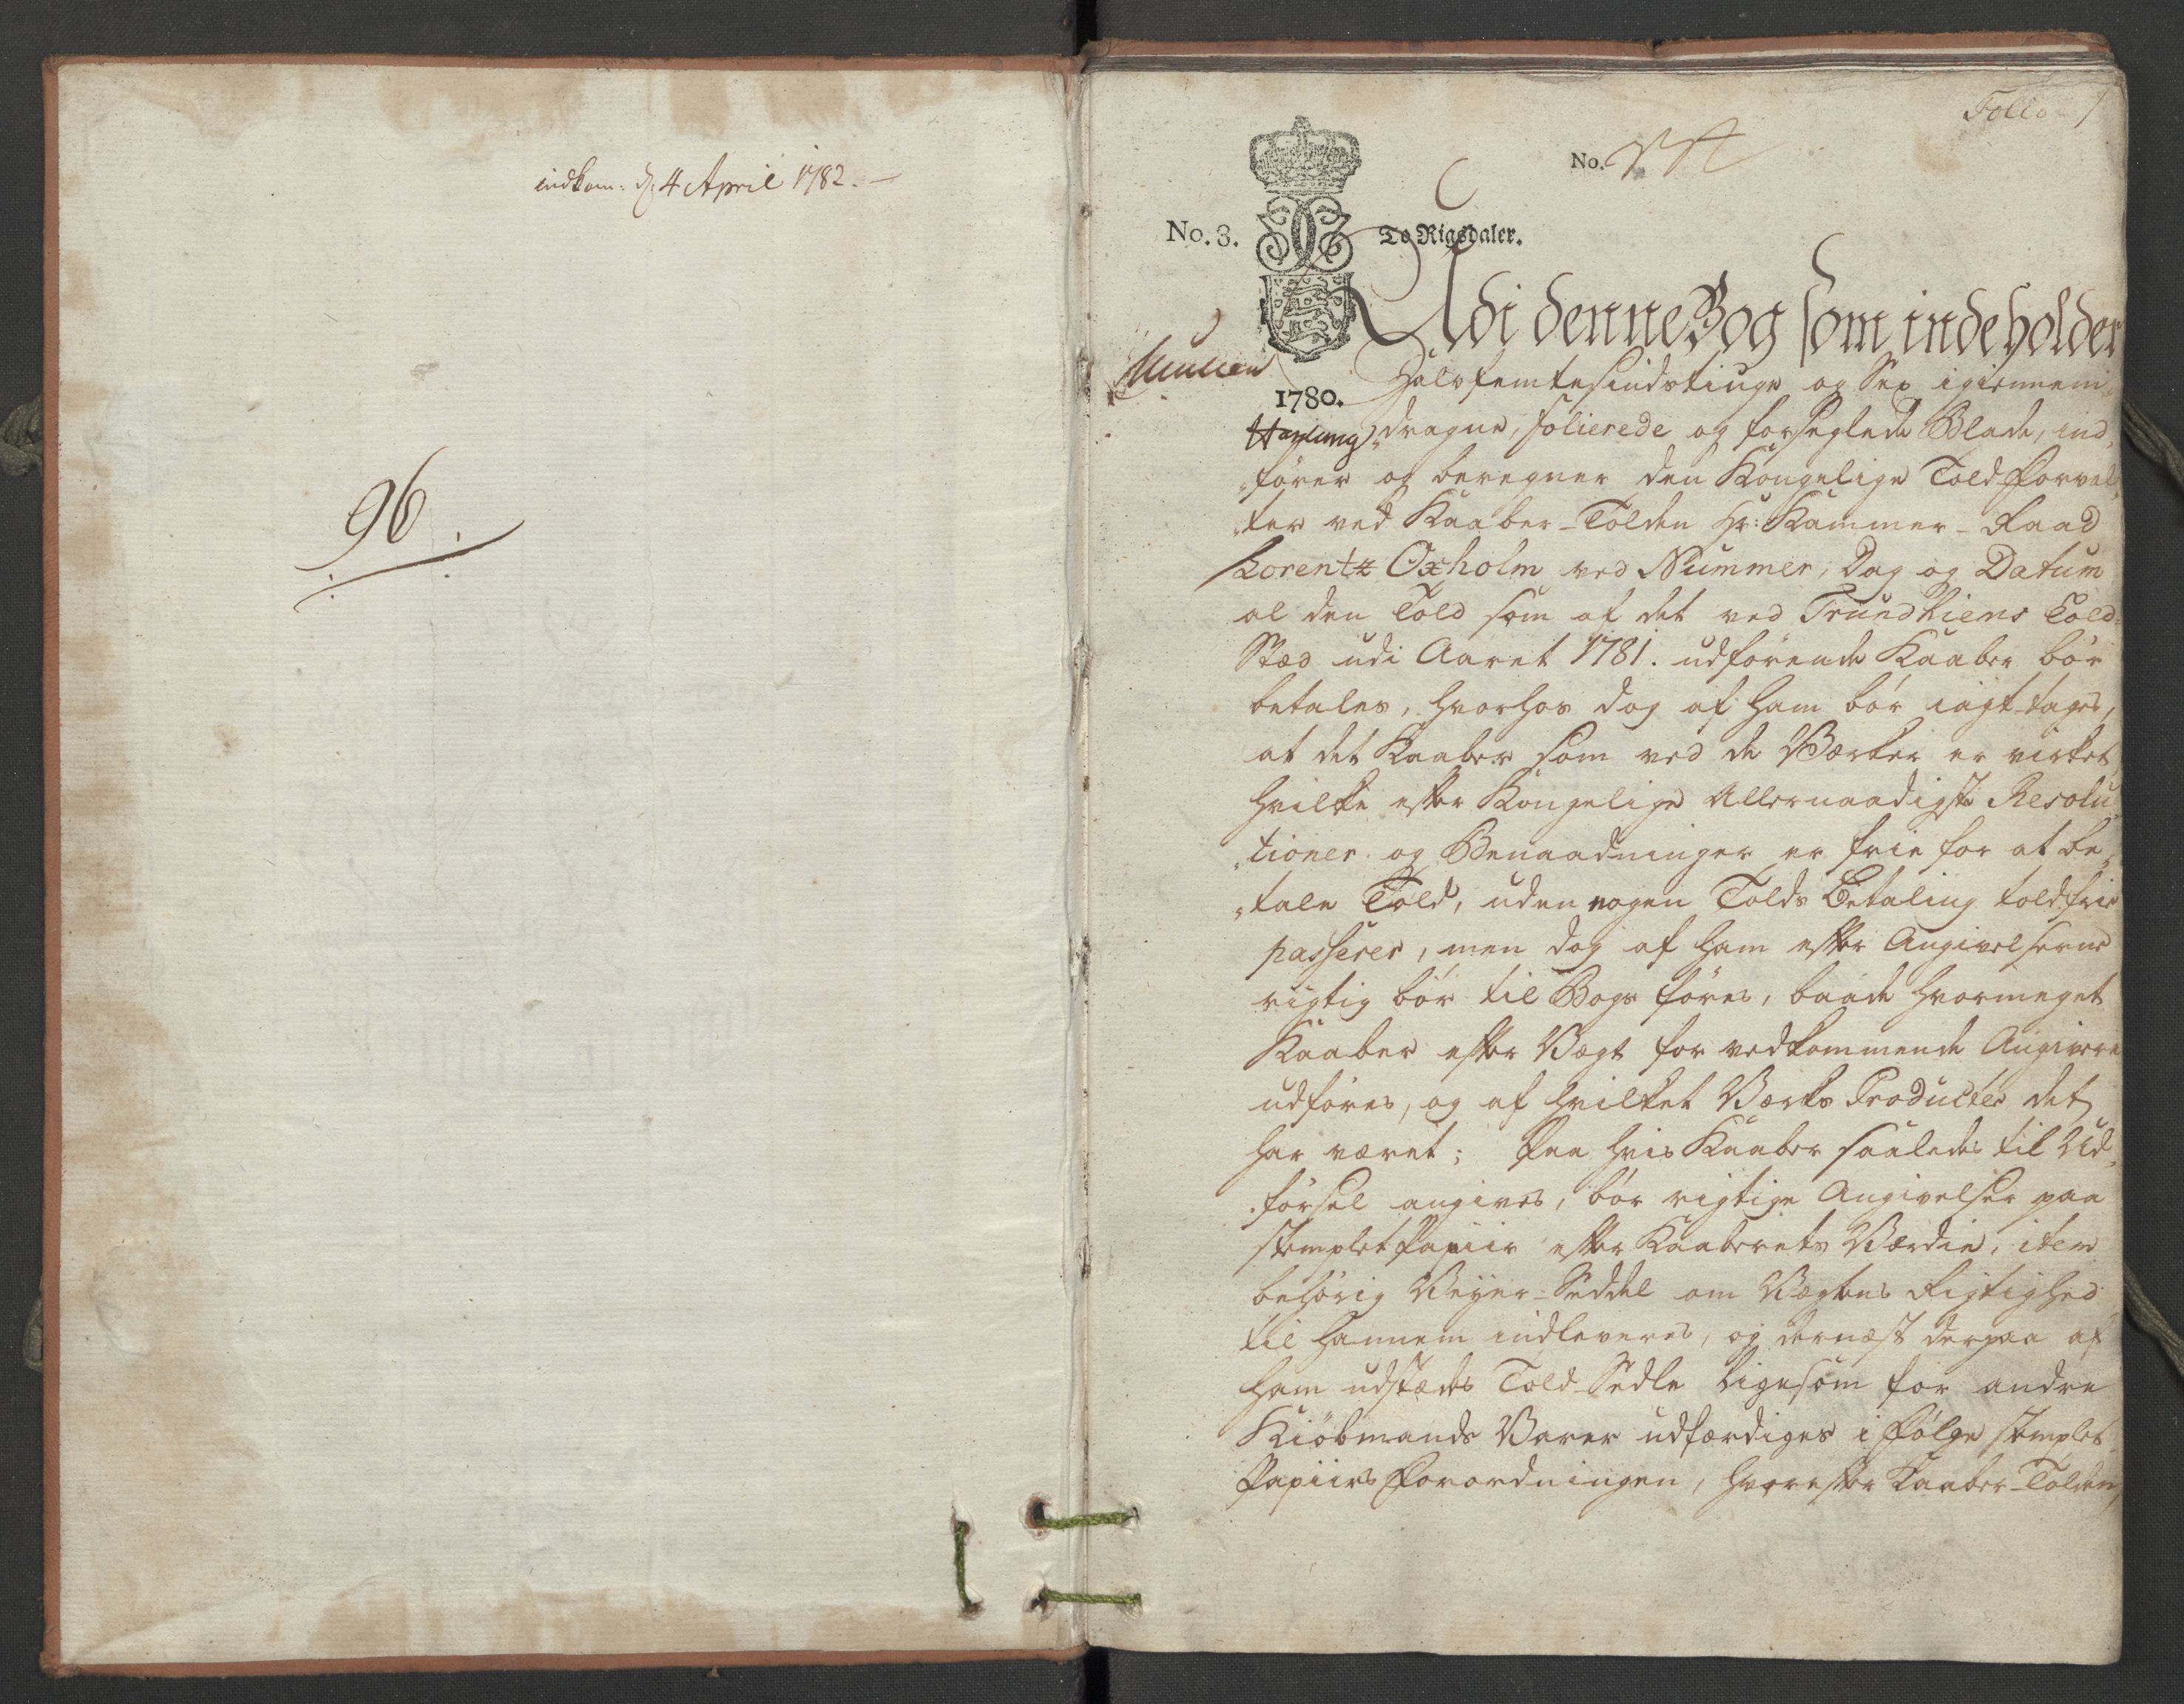 indkom: d: 4 April 1782. —
96.
Folio 1
No.
No. 3. To Rigsdaler.
Udi denne Bog som indeholder
1780. Halvfemtesindstiuge og Sex igiennem-
dragne, folierede og forseglede Blade, ind-
fører og beregner den Kongelige Told-Forval-
ter ved Kaaber-Tolden Hr: Kammer-Raad
Lorentz Oxholm ved Nummer, Dag og Datum
al den Told som af det ved Trundhiems Told-
Stæd udi Aaret 1781. udførende Kaaber bør
betales, hvorhos dog af ham bør iagt-tages,
at det Kaaber som ved de Værker er virket,
hvilke efter Kongelige Allernaadigste Resolu-
tioner og Benaadninger er frie for at be-
tale Told, uden nogen Tolds Betaling toldfrie
passerer, men dog af ham efter Angivelserne
rigtig bør til Bogs føres, baade hvormeget
Kaaber efter Vægt for vedkommende Angivere
udføres, og af hvilket Værks Producter det
har været; Paa hvis Kaaber saaledes til Ud-
førsel angives, bør rigtige Angivelser paa
stemplet Papiir efter Kaaberets Værdie, item
behørig Veyer-Seddel om Vægtens Rigtighed
til hannem indleveres, og dernæst derpaa af
ham udstædes Told-Sedle ligesom for andre
Kiøbmands Varer udfærdiges i Følge stemplet
Papiirs Forordningen, hvorefter Kaaber-Tolden,